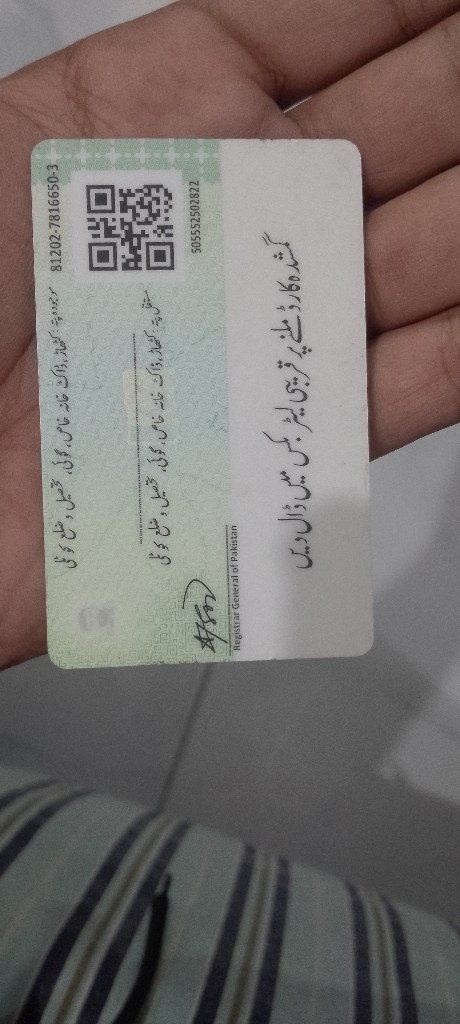 81202-7816650-3
موجودہ پتہ: کٹھاڑ، ڈاک خانہ خاص، کوئی، تحصیل و ضلع کوٹلی
مستقل پتہ: کٹھاڑ، ڈاک خانہ خاص، کوئی، تحصیل و ضلع کوٹلی
505552502822
Registrar General of Pakistan
گمشدہ کارڈ ملنے پر قریبی لیٹر بکس میں ڈال دیں